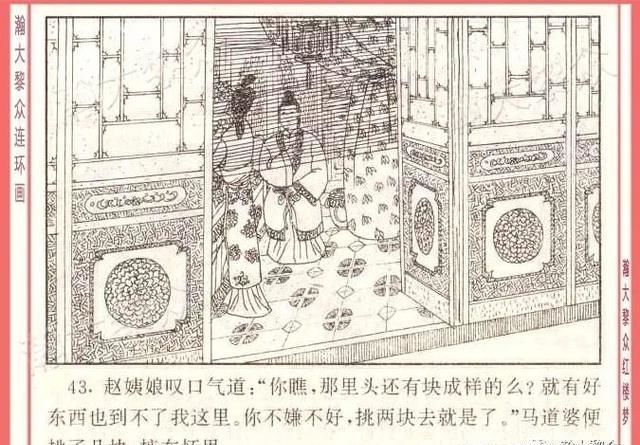 瀚大黎众连环画
43. 赵姨娘叹口气道：“你瞧，那里头还有块成样的么？就有好
东西也到不了我这里。你不嫌不好，挑两块去就是了。”马道婆便
瀚大黎众红楼梦